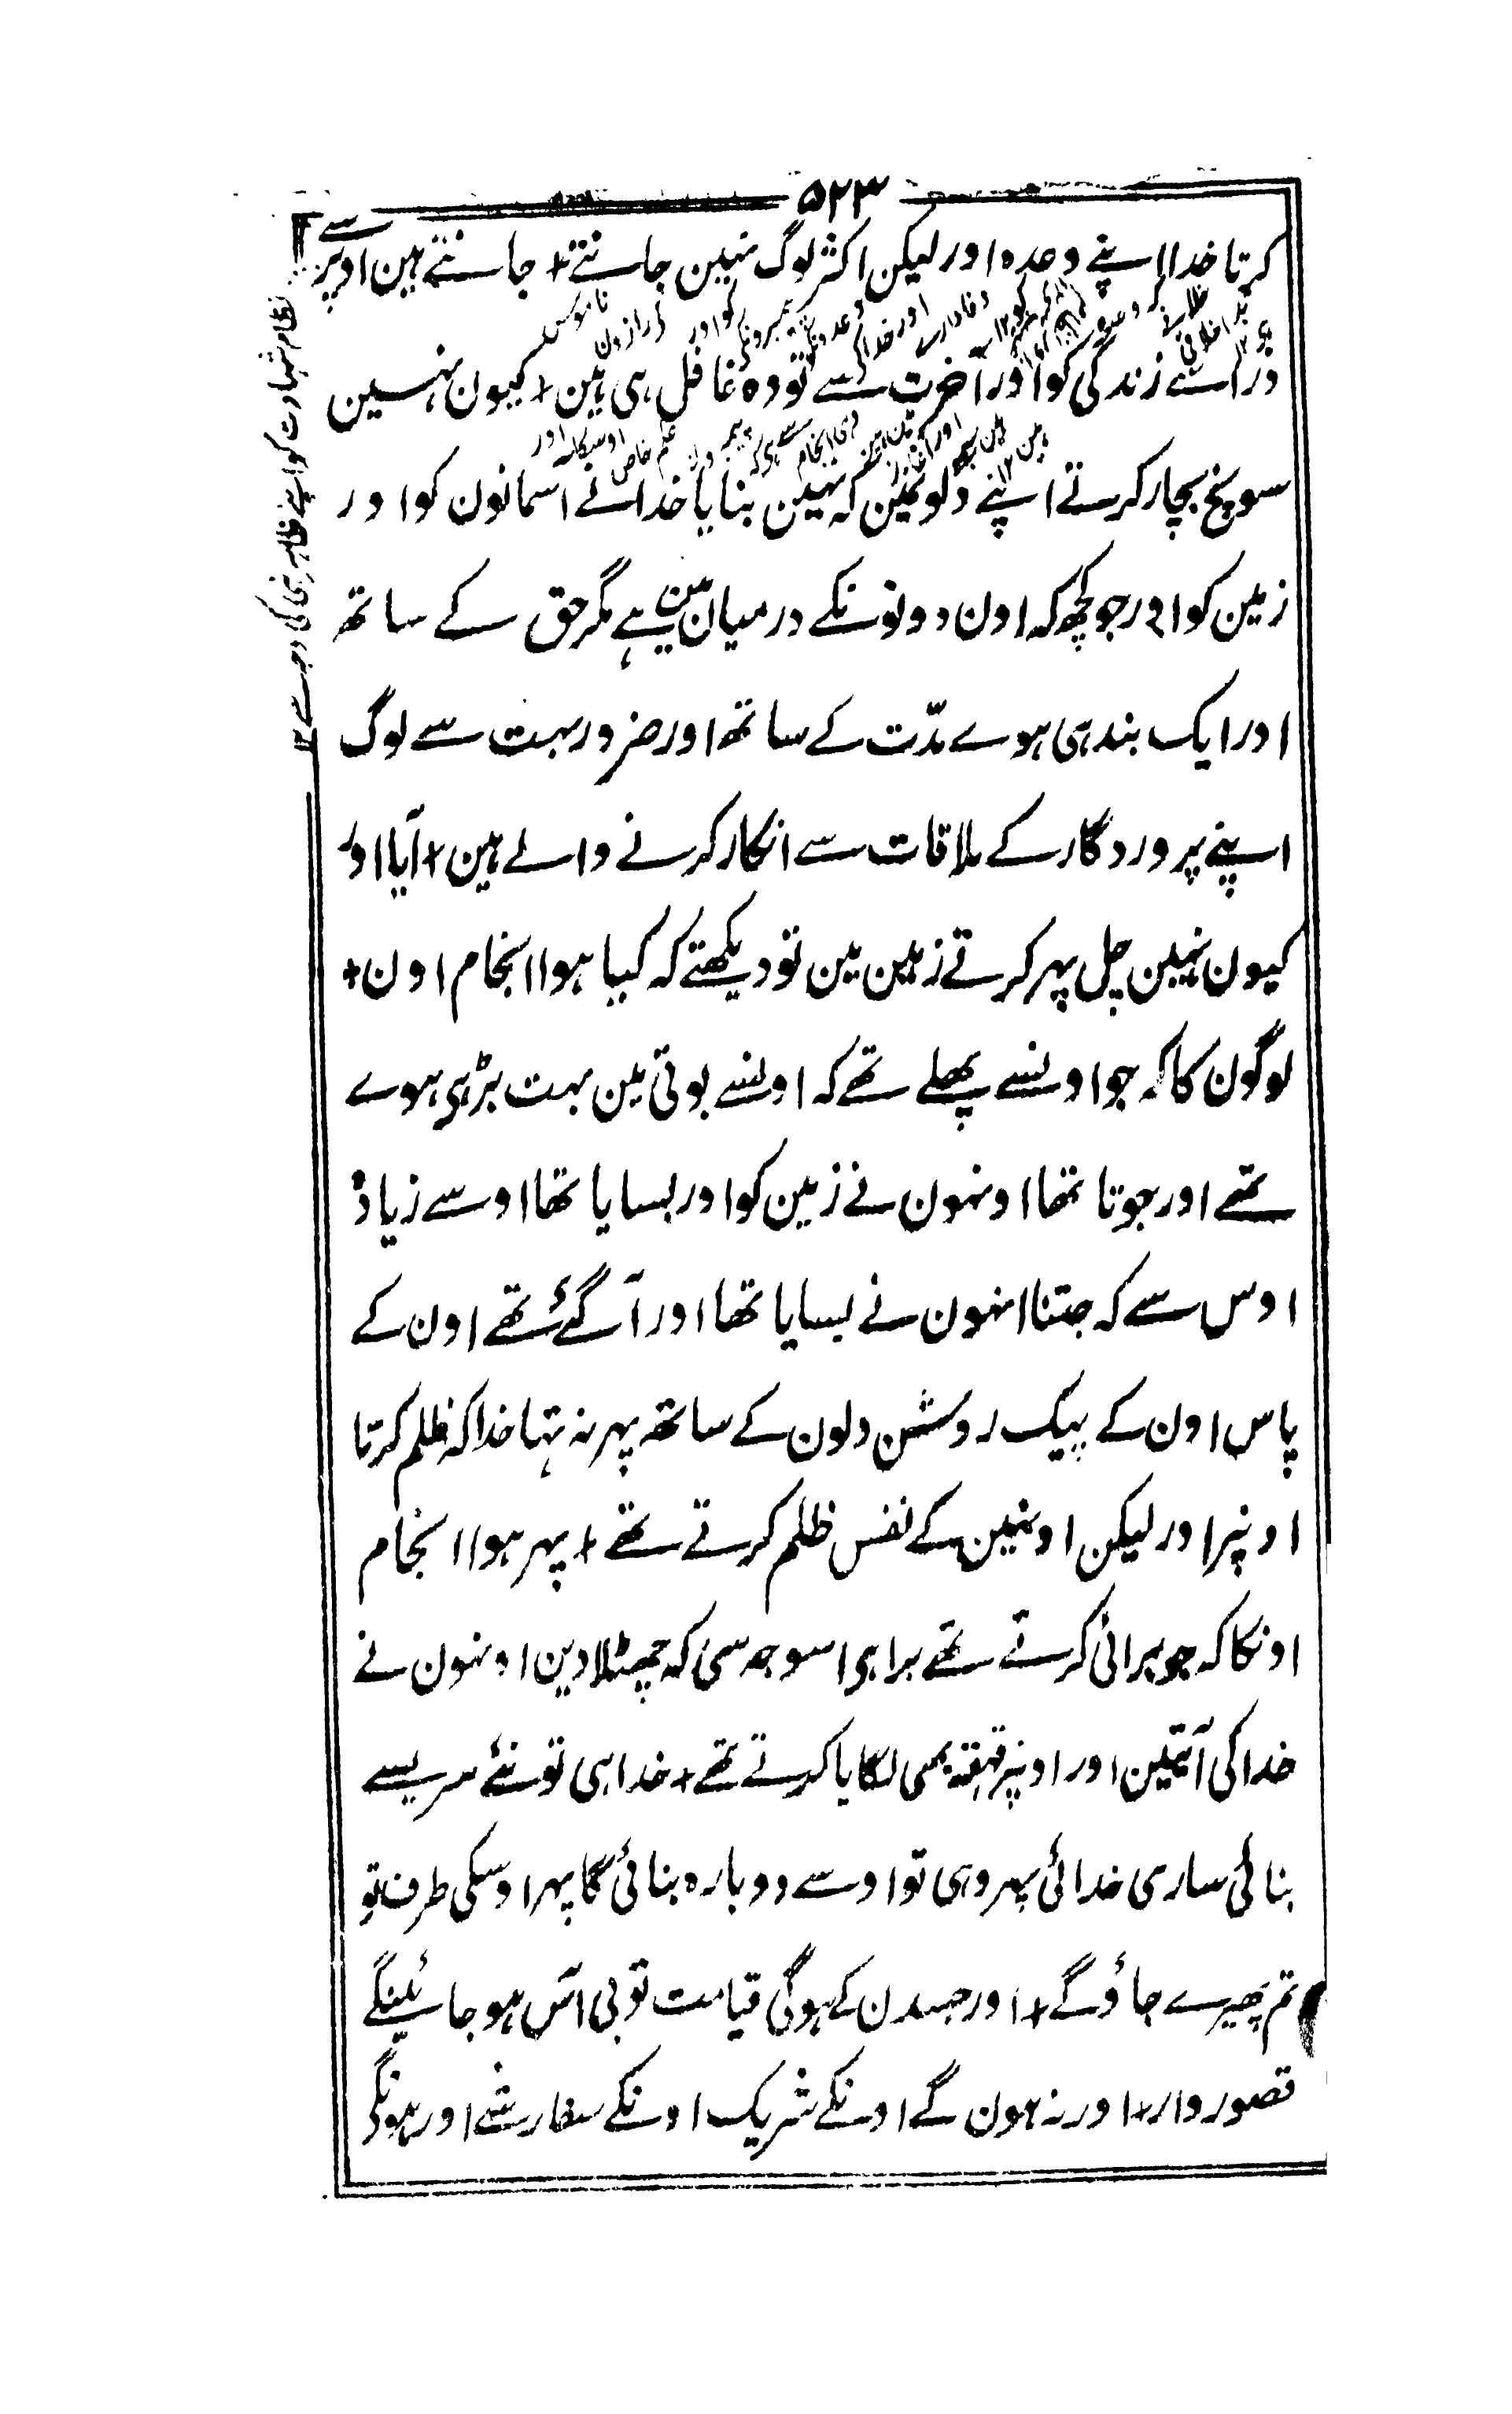 ۵۲۳
کرتا خدا اپنے وعدہ اور لیکن اکثر لوگ نہین جانتے + جانتے ہین اوپر سے
ذراسے زندگی کو اور آخرت سے تو وہ غافل ہی ہین + کیون نہین
سونچ بچار کرتے اپنے دلونمین کہ نہین بنایا خدا نے اسمانون کو اور
زمین کو اور جو کچھ کہ اون دونونکے درمیان مین ہے مگر حق کے ساتھ
اور ایک بندہی ہوے مدّت کے ساتھ اور ضرور بہت سے لوگ
اپنے پروردگار کے ملاقات سے انکار کرنے والے ہین + آیا اور
کیون نہین چل پہر کرتے زمین مین تو دیکھتے کہ کیا ہوا انجام اون +
لوگون کا کہ جو اونسے پھلے تھے کہ اونسے بوتی مین بہت بڑہی ہوے
تھے اور جوتا تھا اونہون نے زمین کو اور بسایا تھا اوسے زیادہ
اوس سے کہ جتنا انہون نے بسایا تھا اور آگئے تھے اون کے
پاس اون کے پیک روشن دلون کے ساتھ پہر نہ تہا خدا کہ ظلم کرتا
اونپر اور لیکن اونہین کے نفس ظلم کرتے تھے + پہر ہوا انجام
اونکا کہ جو برائی کرتے تھے برا ہی اسوجہ سی کہ جھٹلا دین اونہون نے
خدا کی آیتین اور اونپر قہقہہ بھی لگایا کرتے تھے + خدا ہی تو نئے سریسے
بنائی ساری خدائی پہر وہی تو اوسے دوبارہ بنائی گا پہر اوسکی طرف تو
تم پھیرے جاؤگے + اور جسدن کے ہوگی قیامت تو بی آس ہو جائینگے
قصوروار + اور نہ ہون گے اونکے شریک اونکے سفارشے اور ہونگے
نظام شہادت کو اپنے ظاہر کی وجہ سے ۱۲